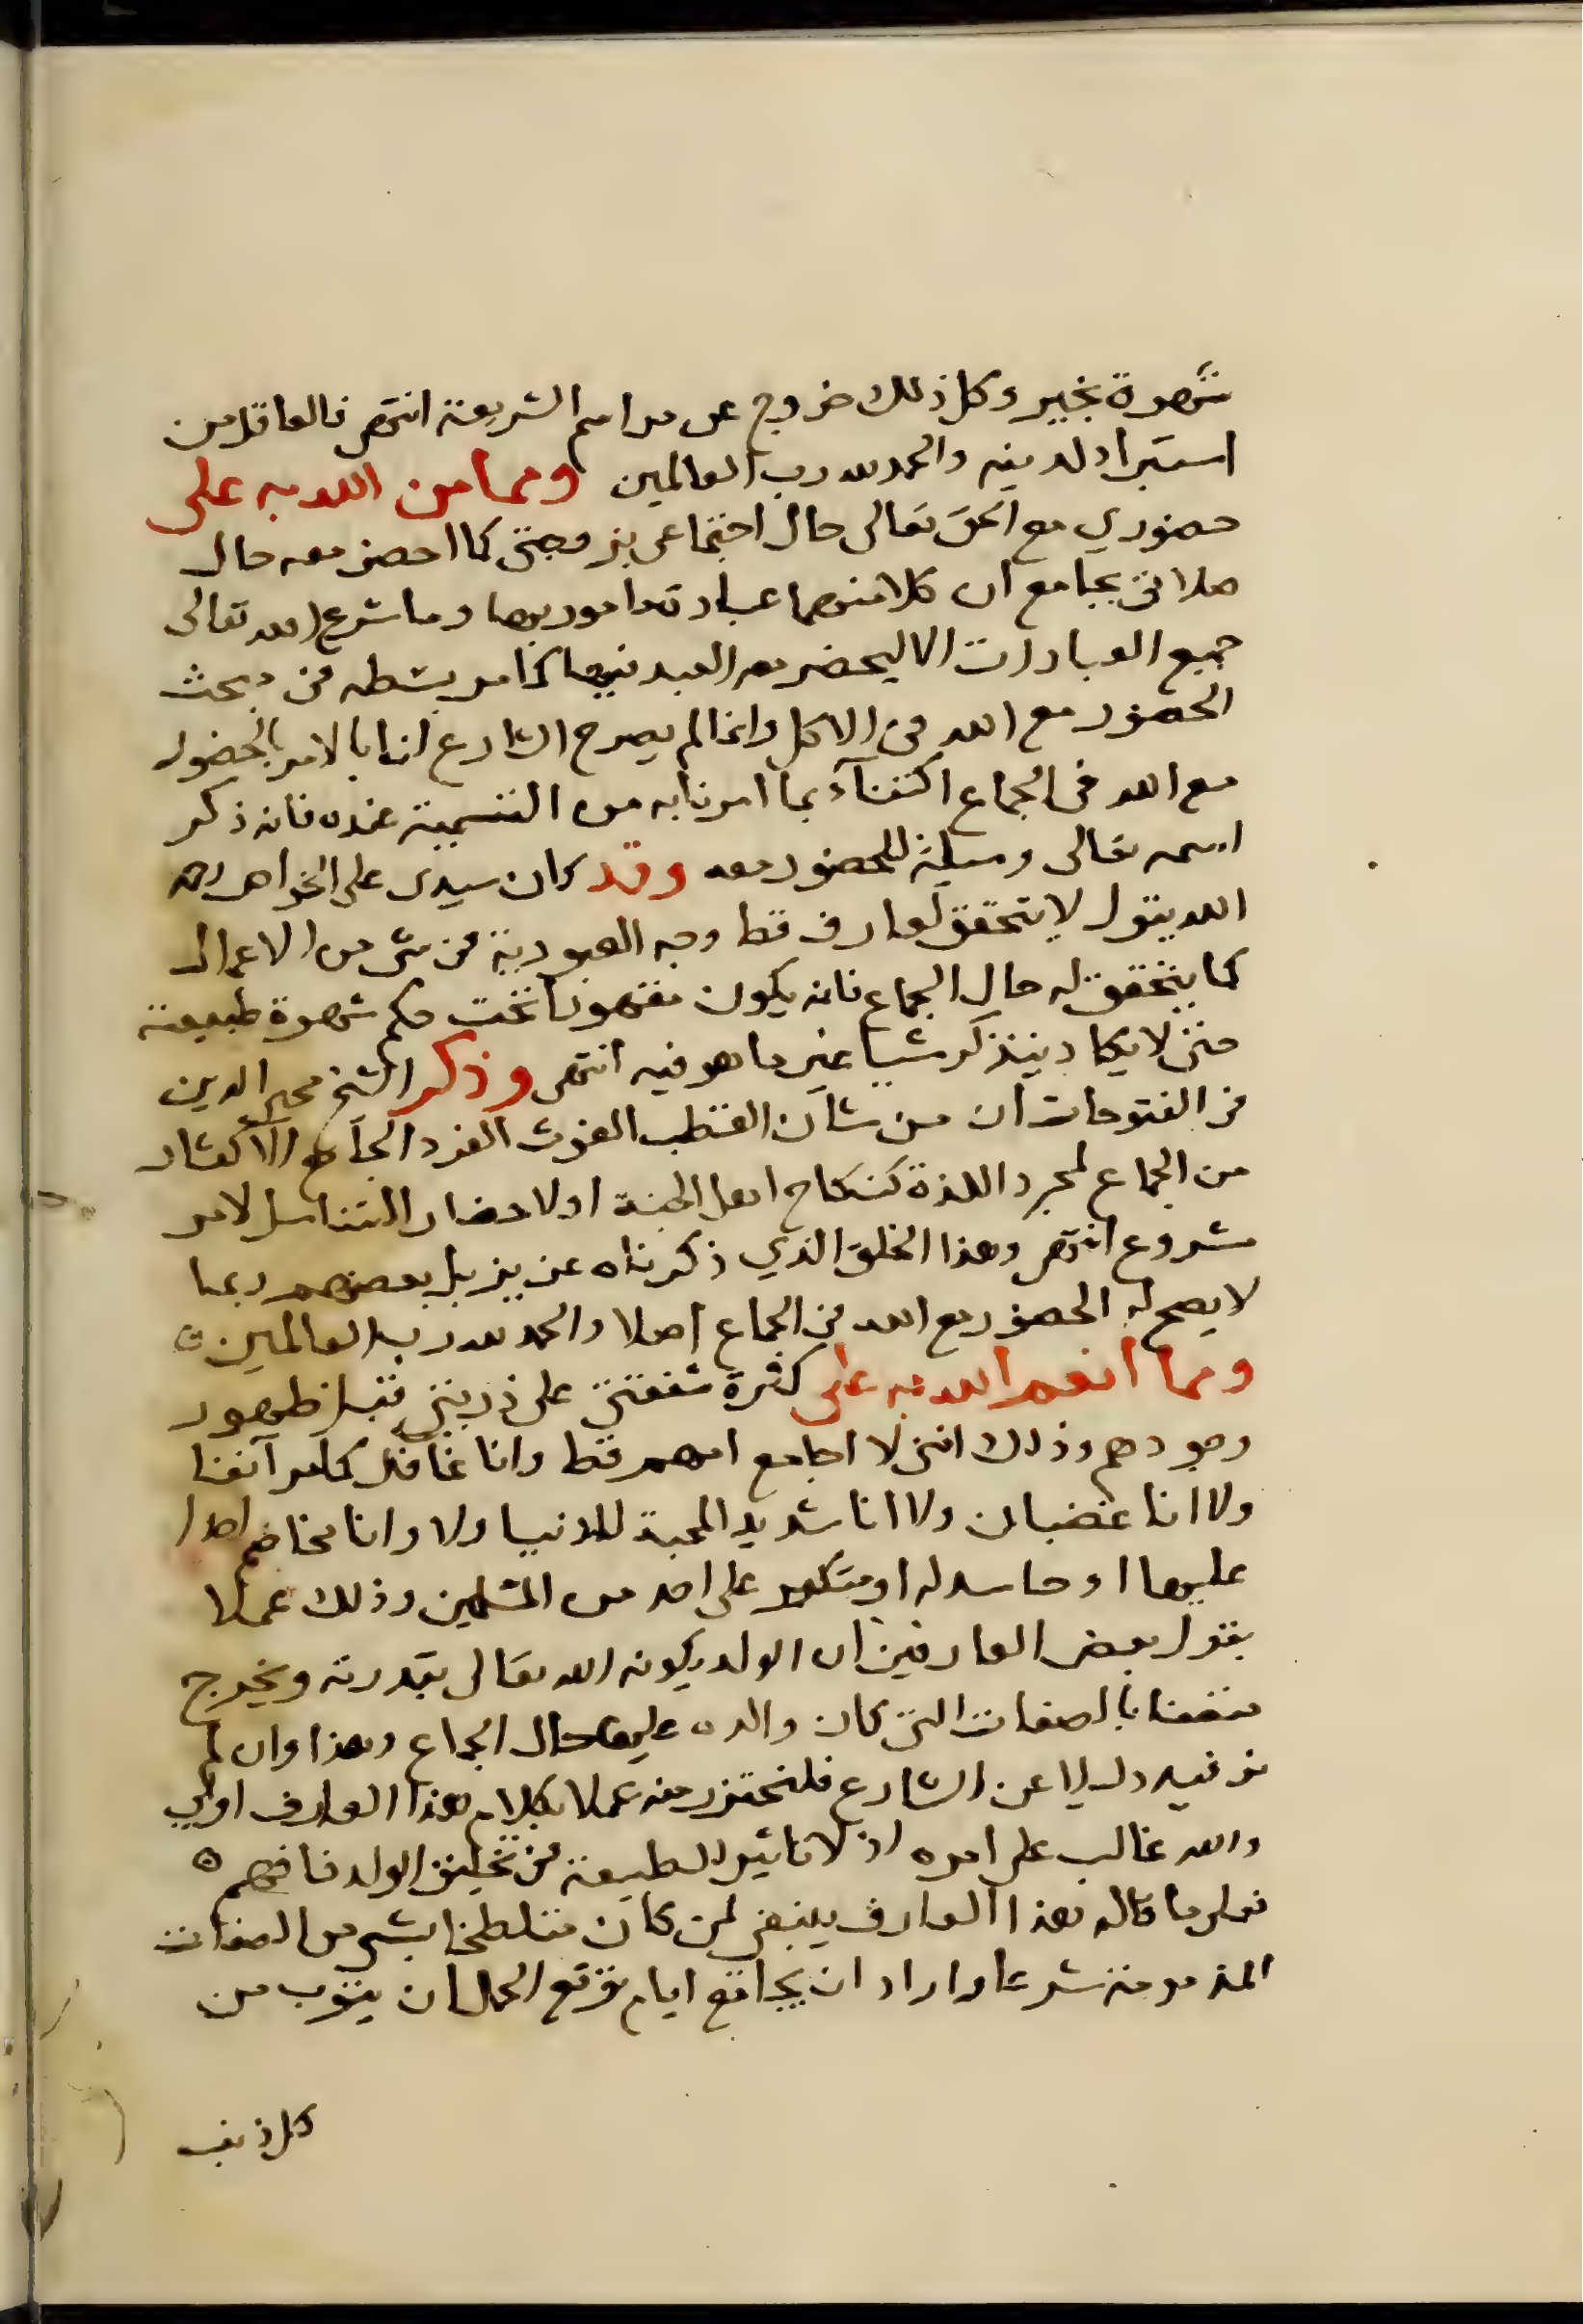 شهوة بخير وكل ذلك خروج عن مراسم الشريعة انتهى فالعاقل من
استبرا لدينه والحمد لله رب العالمين ومما من الله به على
حضوري مع الحق تعالى حال اجتماعي بزوجتى كما احضر معه حال
صلاتى بجامع ان كلا منهما عبادة مامور بها وما شرع الله تعالى
جميع العبادات الا ليحضر معه العبد فيها كما مر بسطه فى مبحث
الحضور مع الله فى الاكل وانما لم يصرح الشارع لنا بالامر بالحضور
مع الله فى الجماع اكتفآء بما امرنا به من التسمية عنده فانه ذكر
اسمه تعالى وسيلة للحضور معه وقد كان سيدى على الخواص رحمه
الله يقول لا يتحقق لعارف قط وجه العبودية فى شى من الاعمال
كما يتحقق له حال الجماع فانه يكون مقهورا تحت حكم شهوة طبيعته
حتى لا يكاد يتذكر شيا غير ما هو فيه انتهى وذكر الشيخ محيى الدين
فى الفتوحات ان من شان القطب الغوث الفرد الجامع الاكثار
من الجماع لمجرد اللذة كنكاح اهل الجنة او لاحضار التناسل لامر
مشروع انتهى وهذا الخلق الذي ذكرناه عزيز بل بعضهم ربما
لا يصح له الحضور مع الله فى الجماع اصلا والحمد لله رب العالمين
ومما انعم الله به على كثرة شفقتى على ذريتى قبل ظهور
وجودهم وذلك اننى لا اجامع امهم قط وانا غافل كما مر آنفا
ولا انا غضبان ولا انا شديد المحبة للدنيا ولا وانا مخاصم احدا
عليها او حاسد له او متكبر على احد من المسلمين وذلك عملا
بقول بعض العارفين ان الولد يكونه الله تعالى بقدرته ويخرج
متصفا بالصفات التى كان والده عليها حال الجماع وهذا وان لم
نر فيه دليلا عن الشارع فلنحترز منه عملا بكلام هذا العارف اولى
والله غالب على امره اذ لا تاثير للطبيعة فى تخليق الولد فافهم ه
فعلى ما قاله هذا العارف ينبغى لمن كان متلطخا بشى من الصفات
المذمومة شرعا واراد ان يجامع ايام توقع الحمل ان يتوب من
كل ذنب